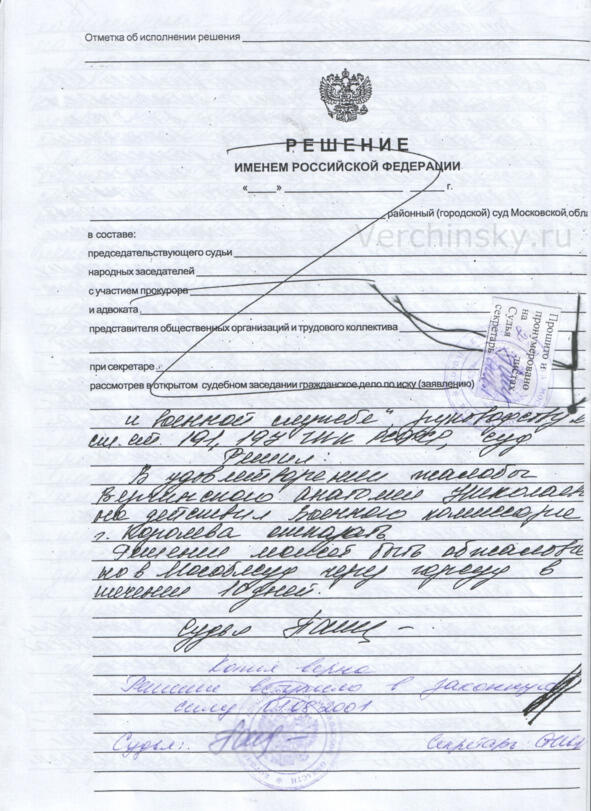 Отметка об исполнении решения
РЕШЕНИЕ
ИМЕНЕМ РОССИЙСКОЙ ФЕДЕРАЦИИ
«____» ____________ ____ г.
районный (городской) суд Московской обла
Verchinsky.ru
в составе:
председательствующего судьи
народных заседателей
с участием прокурора
и адвоката
представителя общественных организаций и трудового коллектива
при секретаре
рассмотрев в открытом судебном заседании гражданское дело по иску (заявлению)
Прошито и
пронумеровано
на листах
Судья
секретарь
и военной службе" руководству
ст. ст. 191, 197 ГПК РСФСР, суд
Решил:
В удовлетворении жалобы
Верчинского Анатолия Николаев
на действия Военного комиссариа
г. Королева отказать
Решение может быть обжалова
но в Мособлсуд через горсуд в
течении 10 дней.
Судья
Копия верна
Решение вступило в законную
силу 01.08.2001
Судья:
Секретарь